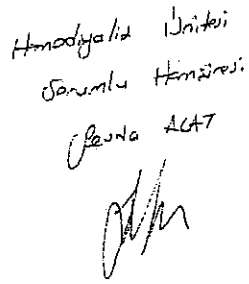 Hemodiyaliz Ünitesi
Sorumlu Hemşiresi
ACAT